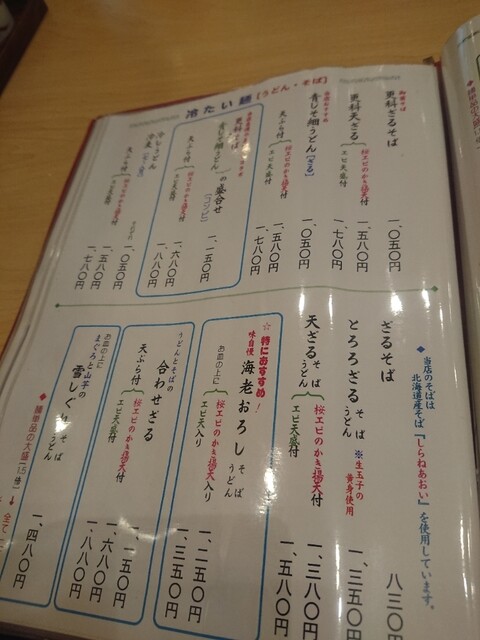 冷たい麺(うどん・そば)
更科ざるそば 一、〇五〇円
更科天ざる
桜エビのかき揚天付 一、五八〇円
エビ天盛付 一、七八〇円
青じそ細うどん[ざる] 一、〇五〇円
天ぷら付
桜エビのかき揚天付 一、五八〇円
エビ天盛付 一、七八〇円
更科そば
青じそ細うどん
の盛合せ
[コンビ] 一、一五〇円
天ぷら付
桜エビのかき揚天付 一、六八〇円
エビ天盛付 一、八八〇円
冷しうどん
冷麦
一、〇五〇円
天ぷら付
桜エビのかき揚天付 一、五八〇円
エビ天盛付 一、七八〇円
◆当店のそばは
北海道産そば『しらねあおい』を使用しています。
ざるそば 八三〇
とろろざる そば うどん
※生玉子の
黄身使用 一、一五〇円
天ざる そば うどん
桜エビのかき揚天付 一、三八〇円
エビ天盛付 一、五八〇円
☆特におすすめ!
味自慢 海老おろし そば うどん
お皿の上に
桜エビのかき揚天入り 一、二五〇円
エビ天入り 一、三五〇円
うどんとそばの
合わせざる 一、一五〇円
天ぷら付
桜エビのかき揚天付 一、六八〇円
エビ天盛付 一、八八〇円
お皿の上に
まぐろと山芋の
雪しぐれ そば うどん 一、四八〇円
◆麺単品の大盛(1.5倍)